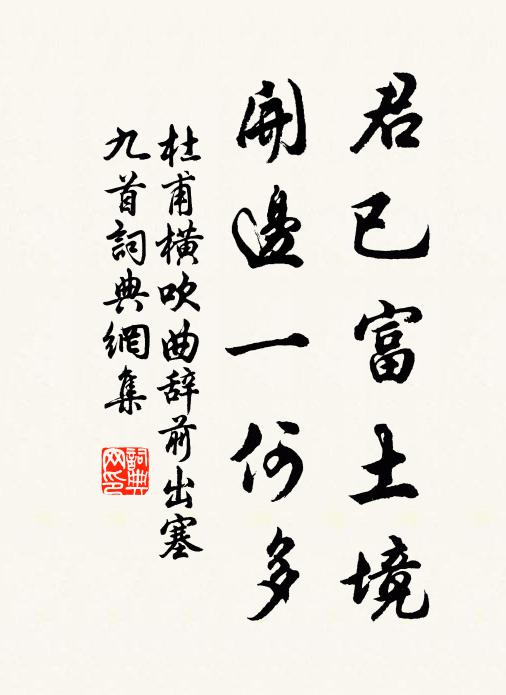 君已富土境
開邊一何多
杜甫橫吹曲辞前出塞
九首詞典網集
詞典
网印